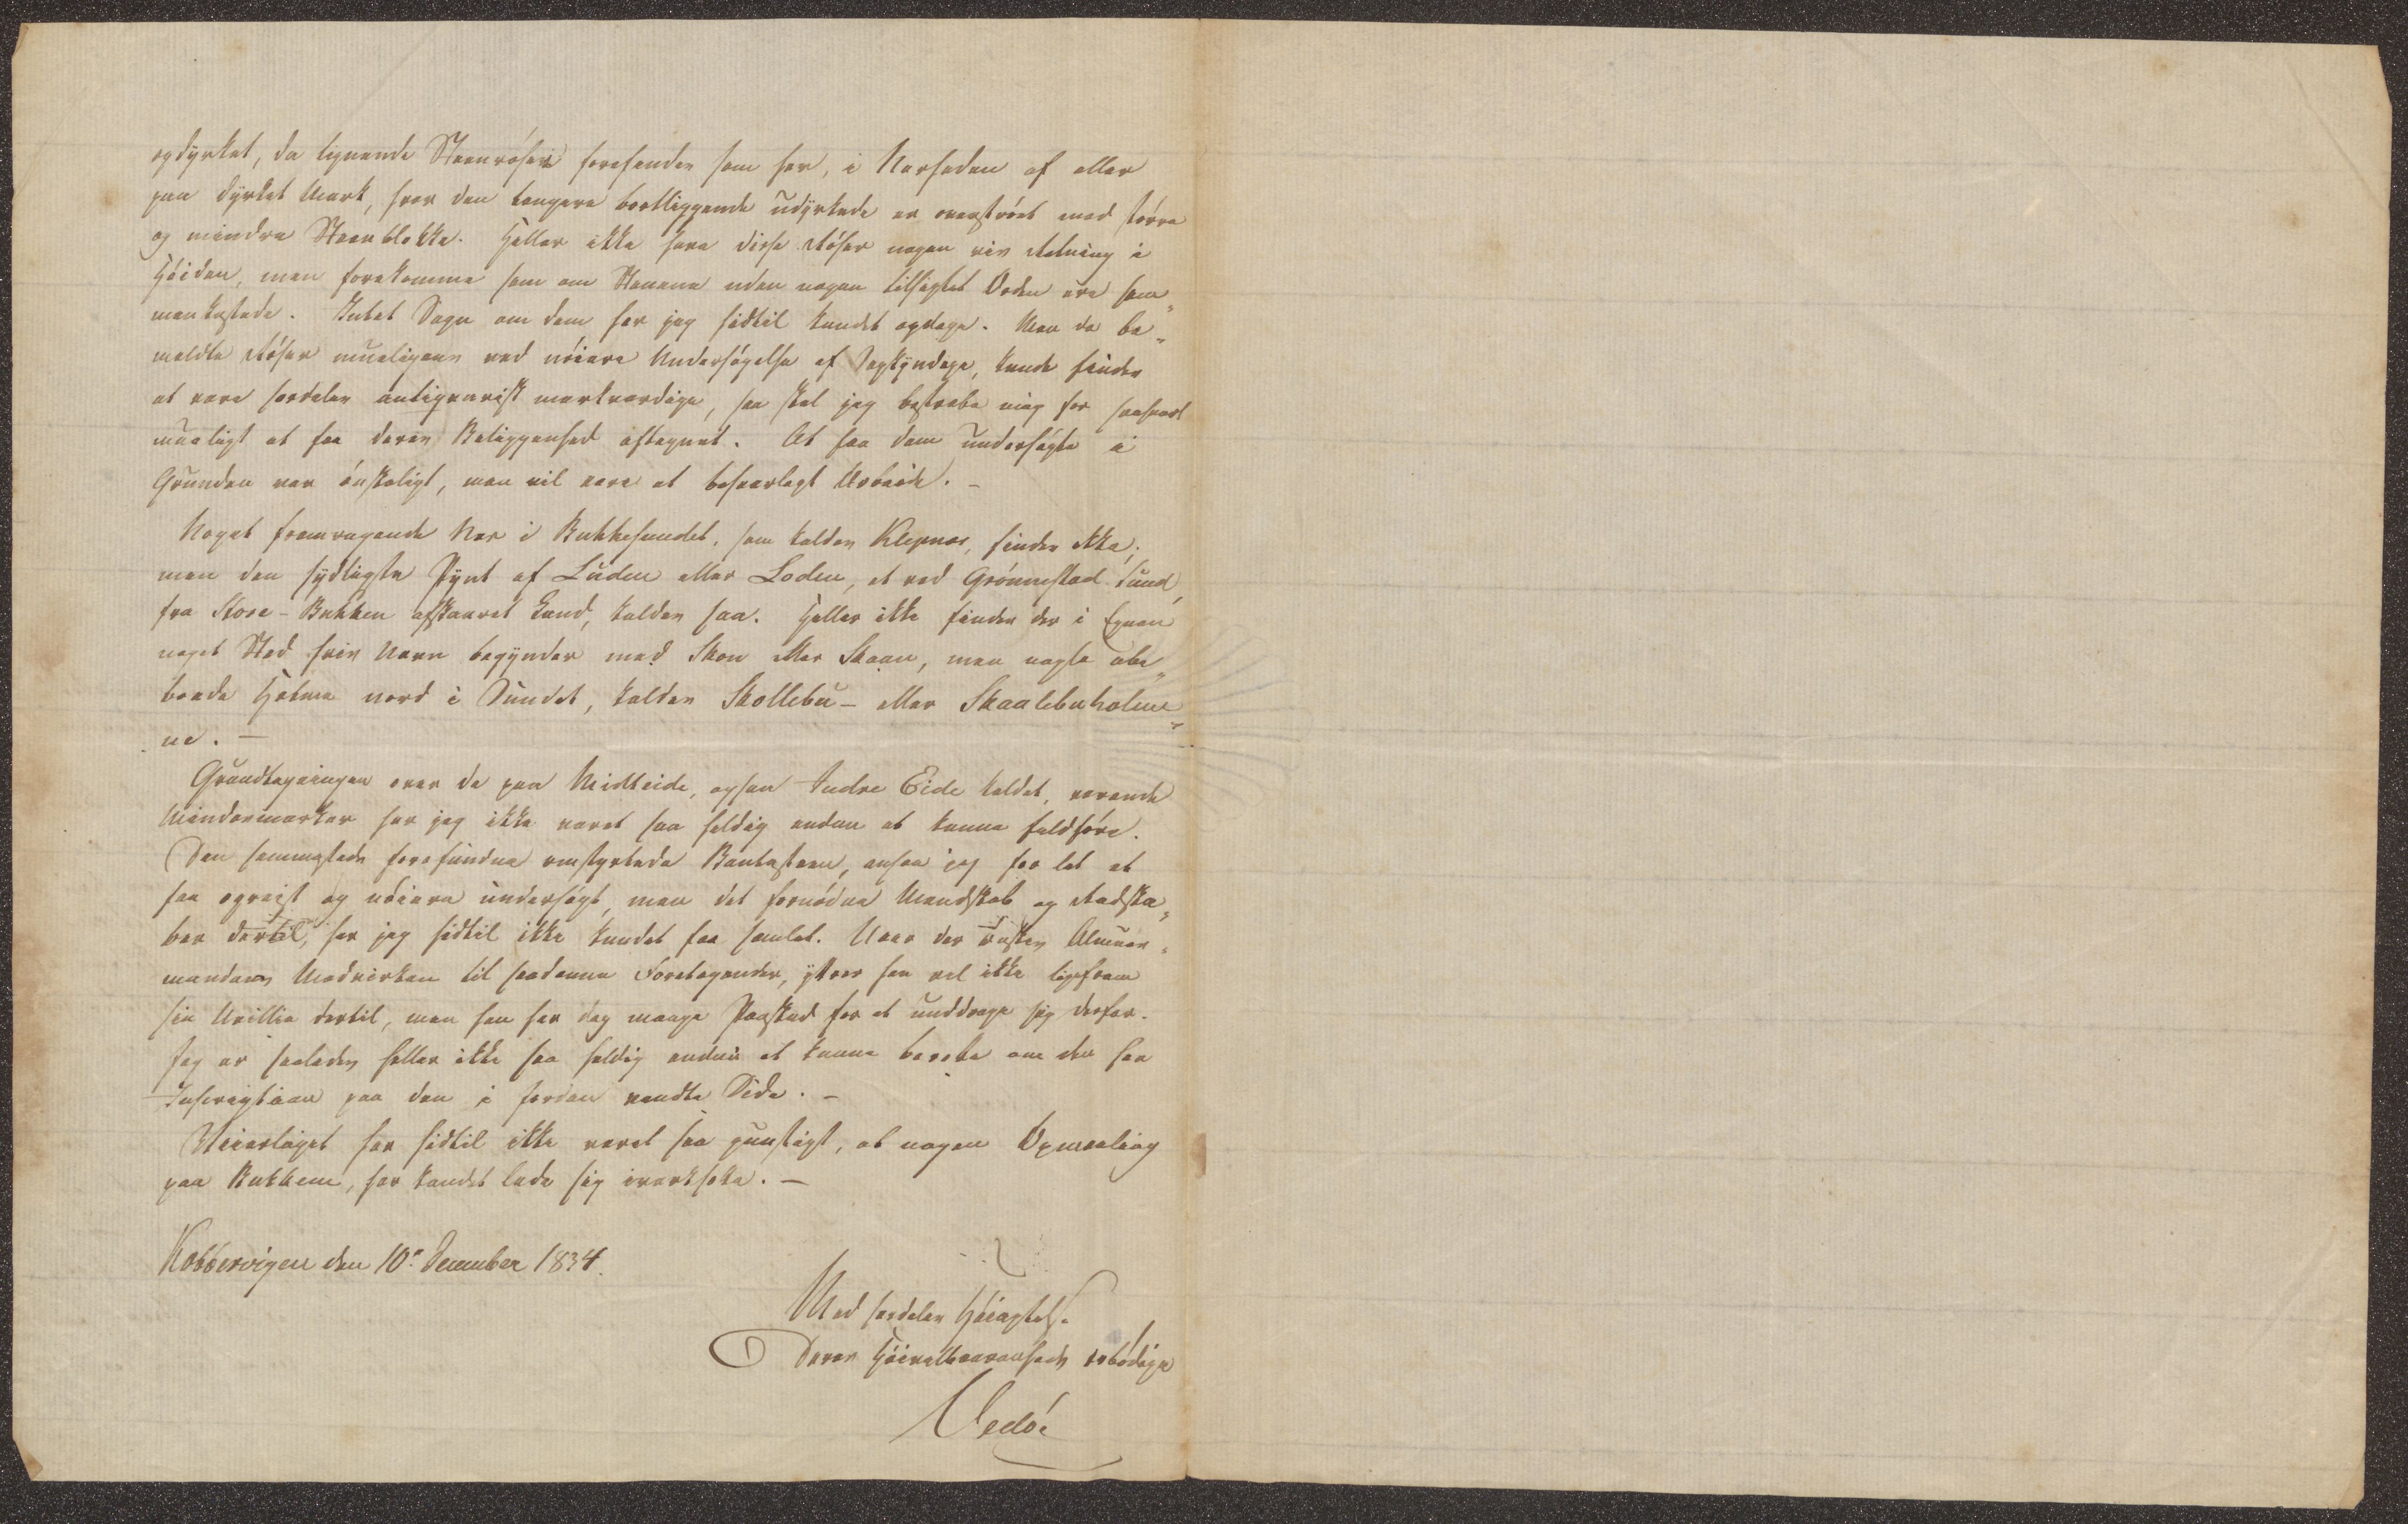 opdyrket, da lignende Steenröser forefindes som her, i Nærheden af eller
paa dyrket Mark, hvor den længere bortliggende udyrkede er overströet med större
og mindre Steenblokke. Heller ikke have disse Röser nogen vis Retning i
Höiden, men forekomme som om Stenene uden nogen tilsigtet Orden ere sam„
menkastede. Intet Sagn om dem har jeg hidtil kundet opdage. Men da be„
meldte Röser mueligens ved nöiere Undersögelse af Sagkyndige, kunde findes
at være særdeles antiqvarisk mærkværdige, saa skal jeg bestræbe mig for saasnart
mueligt at faa deres Beliggenhed aftegnet. At faa dem undersögte i
Grunden var önskeligt, men vil være et besværligt Arbeide. –
Noget fremragende Næs i Bukkesundet, som kaldes Klepnæs, findes ikke;
men den sydligste Pynt af Luden eller Loden, et ved Grönnestad Sund,
fra Store-Bukken afskaaret Land, kaldes saa. Heller ikke findes der i Egnen
noget Sted hvis Navn begynder med Skon eller Skaan, men nogle ube„
boede Holme nord i Sundet, kaldes Skollebu- eller Skaalebuholme„
ne. –
Grundtegningen over de paa Midteide, ogsaa Indre Eide kaldet, værende
Mindesmærker har jeg ikke været saa heldig endnu at kunne fuldföre.
Den sammesteds forefundne omstyrtede Bautasteen, ansaa jeg for let at
faa opreist og nöiere undersögt, men det fornödne Mandskab og Redska„
ber dertil, har jeg hidtil ikke kundet faa samlet. Naar der æskes Almues„
mandens Medvirken til saadanne Foretagender, yttrer han vel ikke ligefrem
sin Uvillie dertil, men han har dog mange Paaskud for at unddrage sig derfor.
Jeg er saaledes heller ikke saa heldig endnu at kunne berette om den har
Inscription paa den i Jorden vendte Side. –
Veirliget har hidtil ikke været saa gunstigt, at nogen Opmaaling
paa Bukken, har kundet lade sig iværksætte. –
Kobbervigen den 10de December 1834.
Med særdeles Höiagtelse
Deres Höivelbaarenheds ærbödige
Vedöe